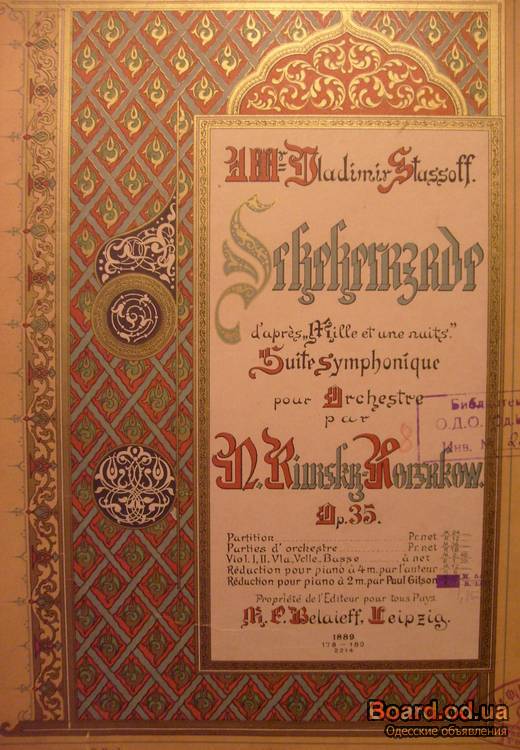 A Mr. Vladimir Stassoff.
Scheherazade
d'après „Mille et une nuits."
Suite symphonique
pour Orchestre
par
N. Rimsky-Korsakow.
Op. 35.
Partition Pr. net
Parties d'orchestre Pr. net
Viol. I, II, Vla, Vclle, Basse à net
Réduction pour piano à 4 m. par l'auteur
Réduction pour piano à 2 m. par Paul Gilson
Propriété de l'Editeur pour tous Pays.
M. P. Belaïeff, Leipzig.
1889
178 — 189
2214
О.Д.О.
Инв. №
Board.od.ua
Одесские объявления